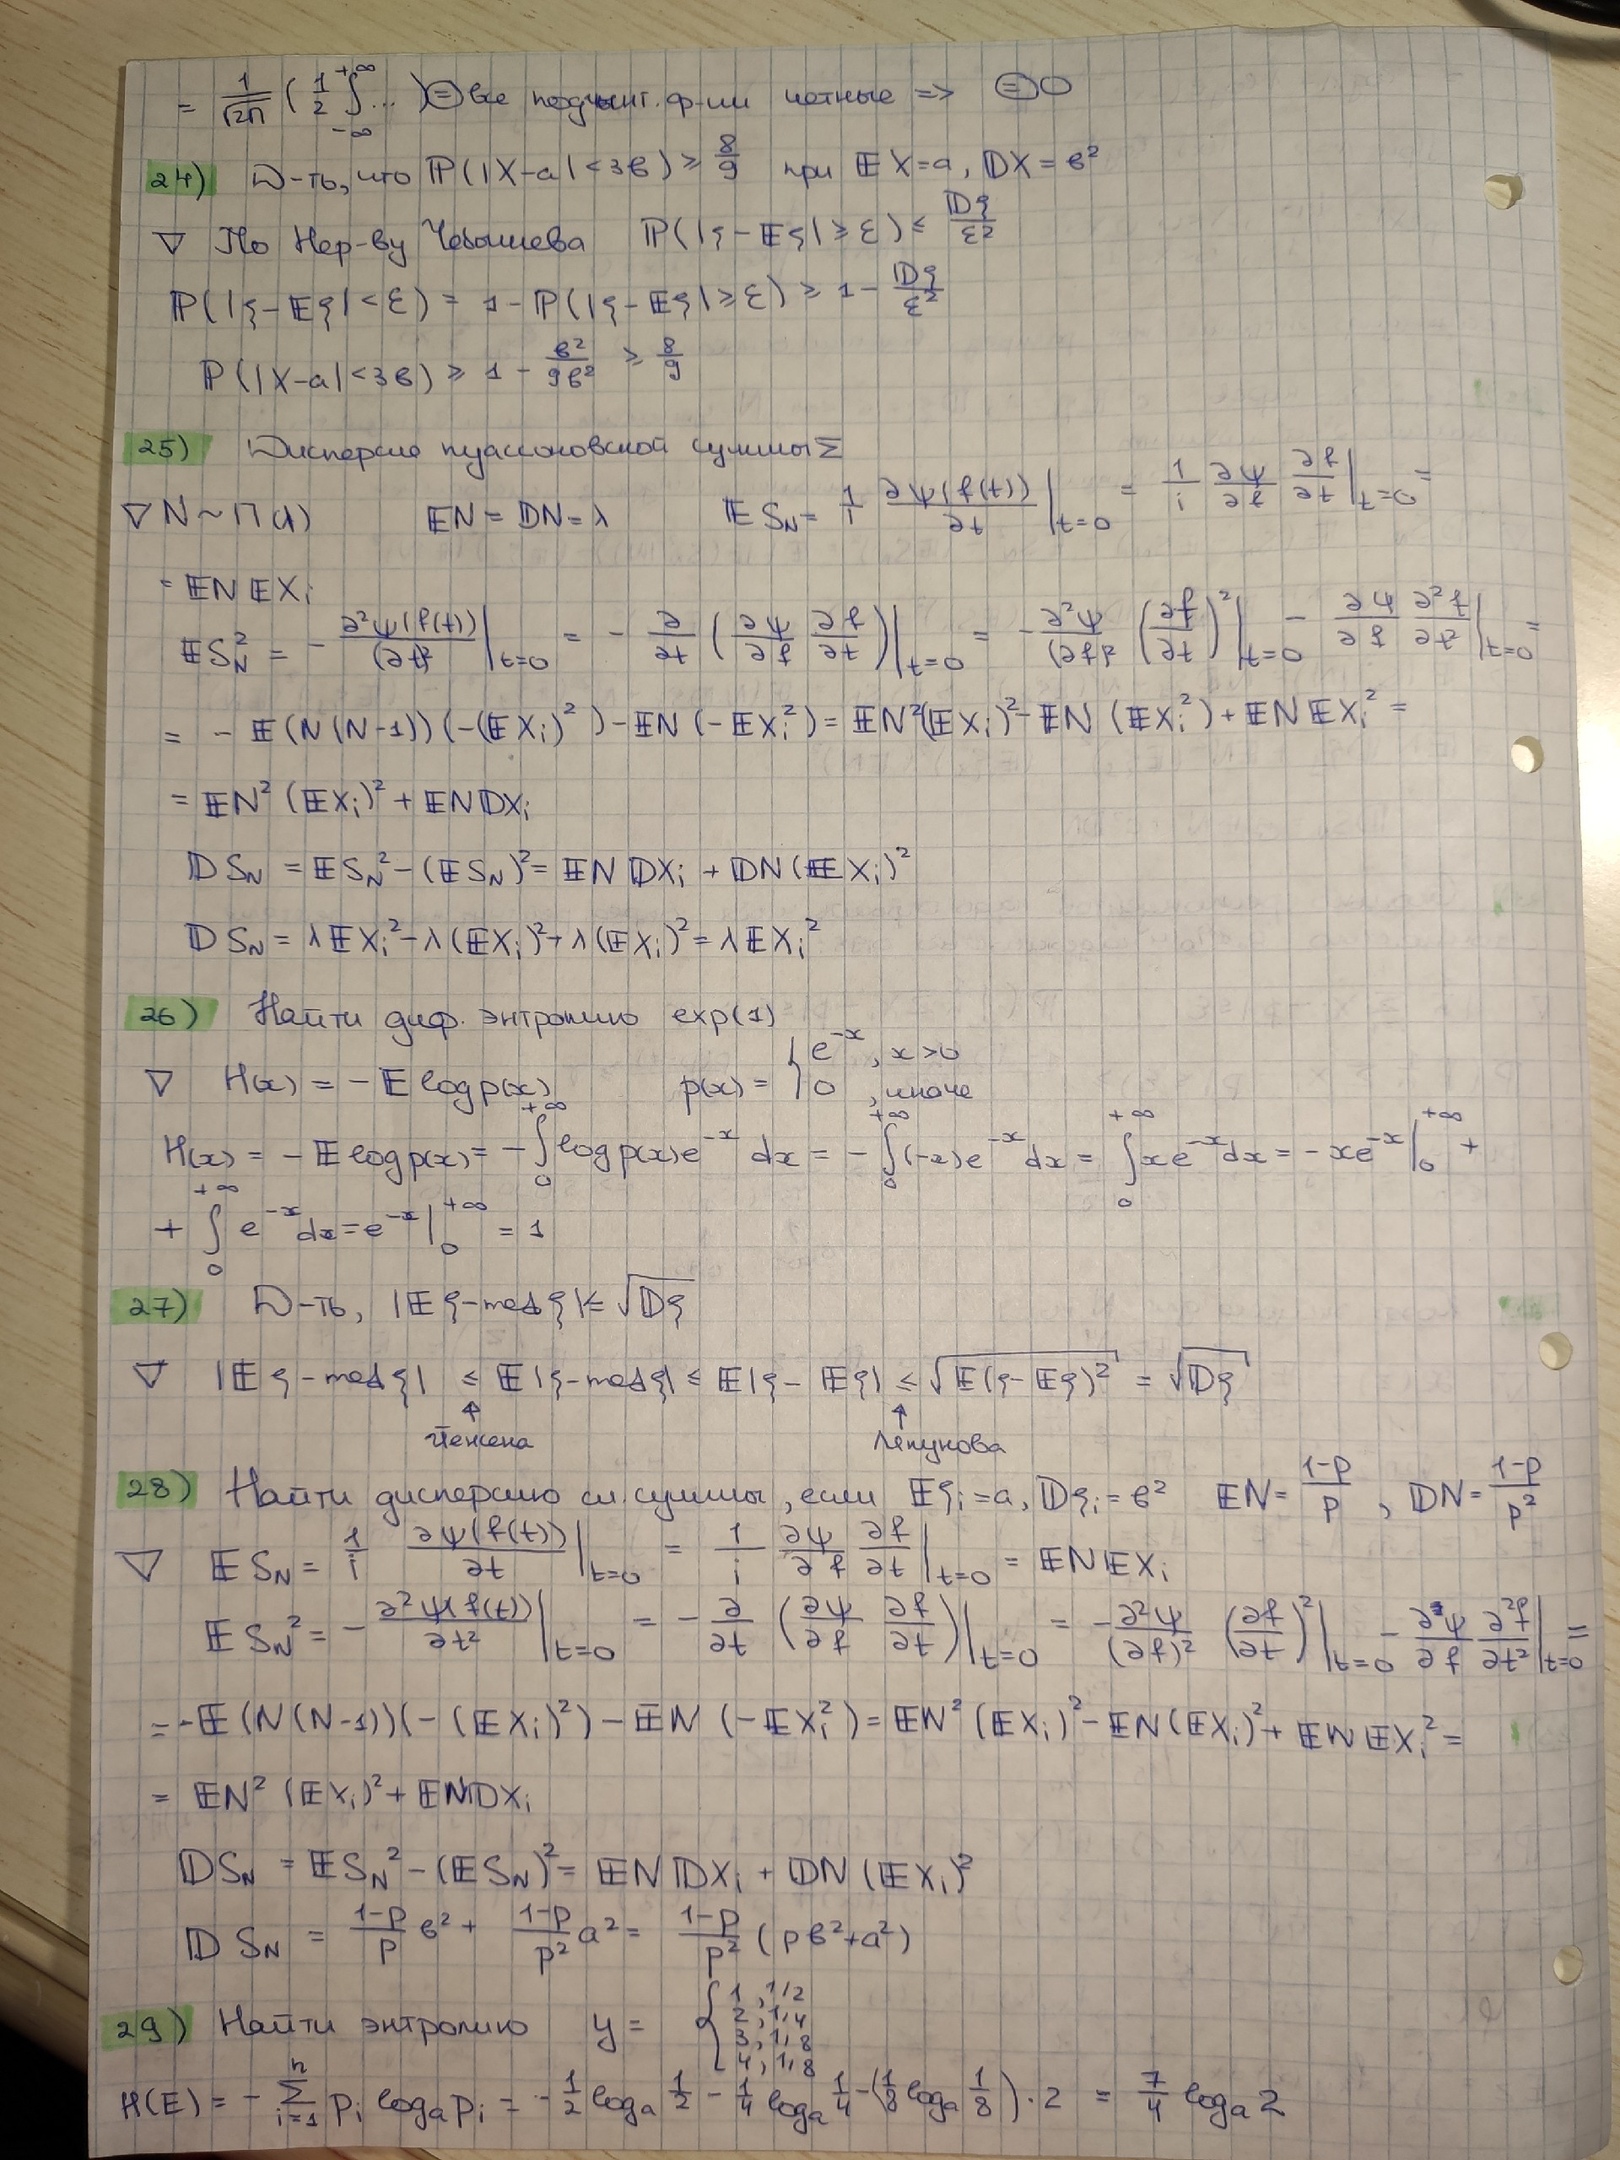 = 1/√2π ( 1/2 ∫_{-∞}^{+∞} ... ) ⊜ все подынт. ф-ии четные => ⊜ 0
24) Д-ть, что ℙ(|X-a|<3в) ≥ 8/9 при 𝔼X=a, 𝔻X=в²
▽ По Нер-ву Чебышева ℙ(|ξ-𝔼ξ|≥ε) ≤ 𝔻ξ/ε²
ℙ(|ξ-𝔼ξ|<ε) = 1-ℙ(|ξ-𝔼ξ|≥ε) ≥ 1- 𝔻ξ/ε²
ℙ(|X-a|<3в) ≥ 1 - в²/9в² ≥ 8/9
25) Дисперсия пуассоновской суммы Σ
▽ N~П(λ) 𝔼N = 𝔻N = λ 𝔼S_N = 1/i ∂ψ(f(t))/∂t |_{t=0} = 1/i ∂ψ/∂f ∂f/∂t |_{t=0} =
= 𝔼N𝔼X_i
𝔼S_N² = - ∂²ψ(f(t))/(∂t)² |_{t=0} = - ∂/∂t (∂ψ/∂f ∂f/∂t)|_{t=0} = - ∂²ψ/(∂f)² (∂f/∂t)²|_{t=0} - ∂ψ/∂f ∂²f/∂t² |_{t=0} =
= - 𝔼(N(N-1))(-(𝔼X_i)²) - 𝔼N(-𝔼X_i²) = 𝔼N²(𝔼X_i)² - 𝔼N (𝔼X_i²) + 𝔼N𝔼X_i² =
= 𝔼N² (𝔼X_i)² + 𝔼N𝔻X_i
𝔻S_N = 𝔼S_N² - (𝔼S_N)² = 𝔼N𝔻X_i + 𝔻N(𝔼X_i)²
𝔻S_N = λ𝔼X_i² - λ(𝔼X_i)² + λ(𝔼X_i)² = λ𝔼X_i²
26) Найти диф. энтропию exp(1)
▽ H(x) = - 𝔼 log p(x) p(x) = { e^{-x}, x>0
0 , иначе
H(x) = - 𝔼 log p(x) = - ∫_0^{+∞} log p(x) e^{-x} dx = - ∫_0^{+∞} (-x)e^{-x}dx = ∫_0^{+∞} xe^{-x}dx = - xe^{-x}|_0^{+∞} +
+ ∫_0^{+∞} e^{-x}dx = e^{-x}|_0^{+∞} = 1
27) Д-ть, |𝔼ξ-medξ| ≤ √𝔻ξ
▽ |𝔼ξ-medξ| ≤ 𝔼|ξ-medξ| ≤ 𝔼|ξ-𝔼ξ| ≤ √𝔼(ξ-𝔼ξ)² = √𝔻ξ
↑ ↑
Йенсена Ляпунова
28) Найти дисперсию сл. суммы, если 𝔼ξ_i=a, 𝔻ξ_i=в² 𝔼N = 1-p/p , 𝔻N = 1-p/p²
▽ 𝔼S_N = 1/i ∂ψ(f(t))/∂t |_{t=0} = 1/i ∂ψ/∂f ∂f/∂t |_{t=0} = 𝔼N𝔼X_i
𝔼S_N² = - ∂²ψ(f(t))/∂t² |_{t=0} = - ∂/∂t (∂ψ/∂f ∂f/∂t)|_{t=0} = - ∂²ψ/(∂f)² (∂f/∂t)²|_{t=0} - ∂ψ/∂f ∂²f/∂t² |_{t=0} =
= -𝔼(N(N-1))(-(𝔼X_i)²) - 𝔼N (-𝔼X_i²) = 𝔼N² (𝔼X_i)² - 𝔼N(𝔼X_i)² + 𝔼N𝔼X_i² =
= 𝔼N² (𝔼X_i)² + 𝔼N𝔻X_i
𝔻S_N = 𝔼S_N² - (𝔼S_N)² = 𝔼N𝔻X_i + 𝔻N(𝔼X_i)²
𝔻S_N = 1-p/p в² + 1-p/p² a² = 1-p/p² (pв²+a²)
29) Найти энтропию y = { 1, 1/2
2, 1/4
3, 1/8
4, 1/8
H(E) = - Σ_{i=1}^{n} p_i log_a p_i = - 1/2 log_a 1/2 - 1/4 log_a 1/4 - (1/8 log_a 1/8)·2 = 7/4 log_a 2